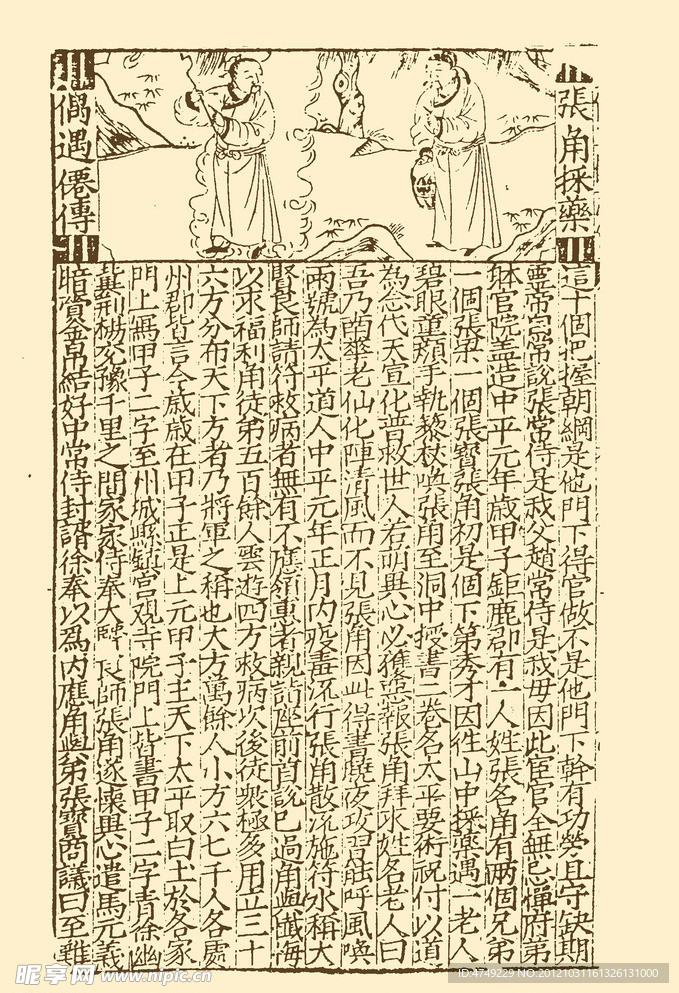 張角採藥
偶遇僊傳
這十個把握朝綱是他門下得官做不是他門下幹有功勞且守缺期
靈帝自常說張常侍是我父趙常侍是我母因此宦官全無忌憚府第
官院盖造中平元年歲甲子鉅鹿郡有一人姓張名角有兩個兄弟
一個張梁一個張寶張角初是個下第秀才因徃山中採藥遇一老人
碧眼童顏手執藜杖喚張角至洞中授書二卷名太平要術祝付以道
為念代天宣化普救世人若萌異心必獲惡報張角拜求姓名老人曰
吾乃南華老仙化陣清風而不見張角因此得書曉夜攻習能呼風喚
雨號為太平道人中平元年正月內疫毒流行張角散流施符水稱大
賢良師請符救病者無有不應領患者親詣坐前首說已過角與懺悔
以求福利角徒弟五百餘人雲遊四方救病次後徒衆極多用立三十
六方分布天下方者乃將軍之稱也大方萬餘人小方六七千人各處
州郡皆言今歲歲在甲子正是上元甲子主天下太平取白土於各家
門上寫甲子二字至州城縣鎮宮觀寺院門上皆書甲子二字青徐幽
冀荆楊兗豫千里之間家家侍奉大 良師張角遂懷異心遣馬元義
暗賫金帛結好中常侍封諝徐奉以為內應角與弟張寶商議曰至難
昵享网 www.nipic.cn
ID:4749229 NO:20121031161326131000